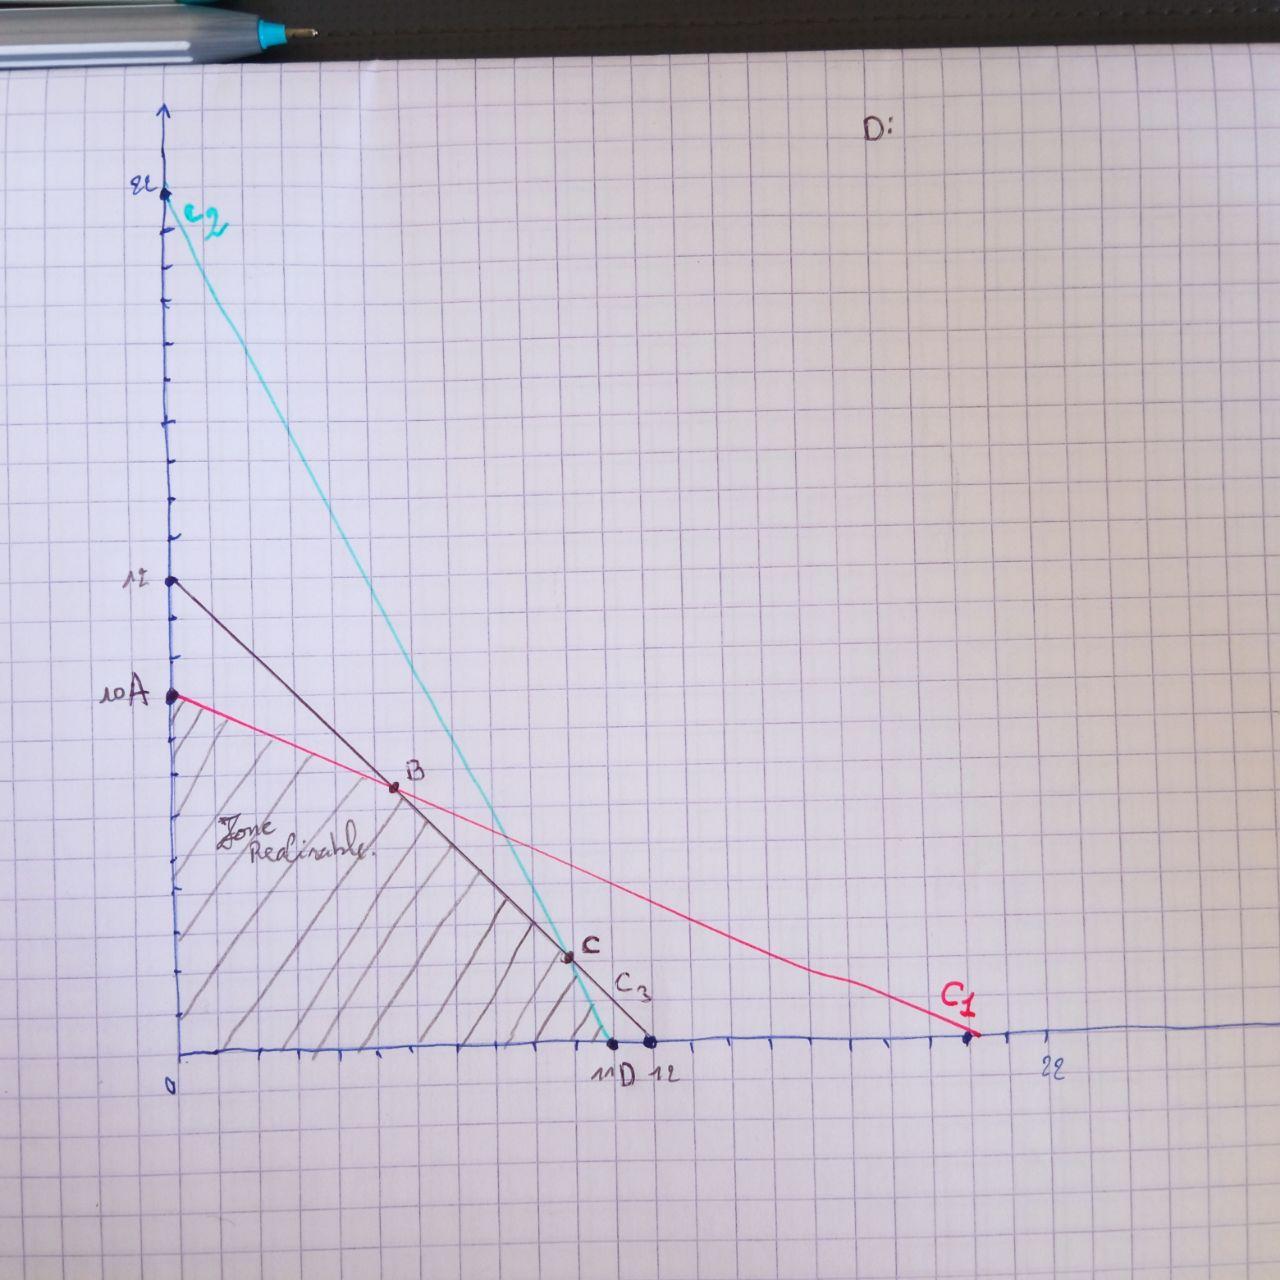 D:
22
C2
12
10A
B
Zone
Realisable.
C
C3
C1
0
11D 12
22